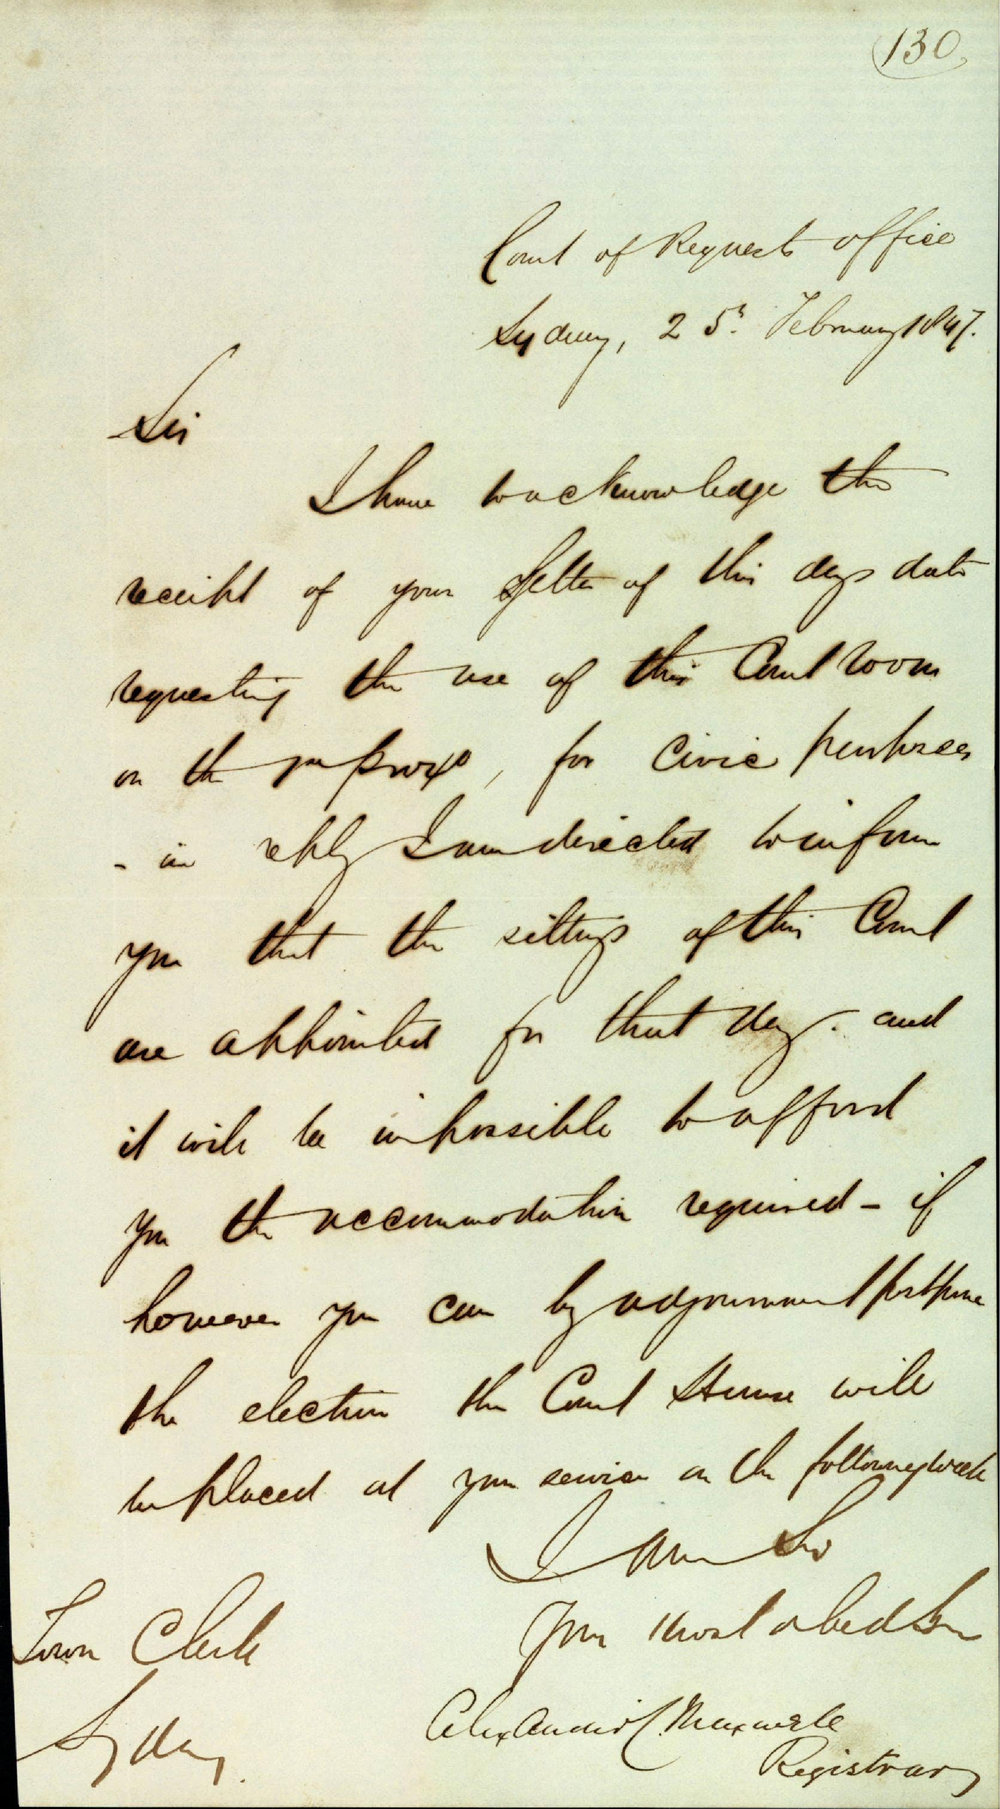 130
Court of Requests office
Sydney, 25th February 1847.
Sir
I have to acknowledge the
receipt of your Letter of this days date
requesting the use of this Court room
on the proxo, for Civic purposes
- in reply I am directed to inform
you that the sittings of this Court
are appointed for that day. and
it will be impossible to afford
you the accommodation required - if
however you can by adjournment postpone
the election the Court House will
be placed at your service on the following week
I am Sir
Your most obed Ser
Alexander C. Maxwell
Registrar
Town Clerk
Sydney.